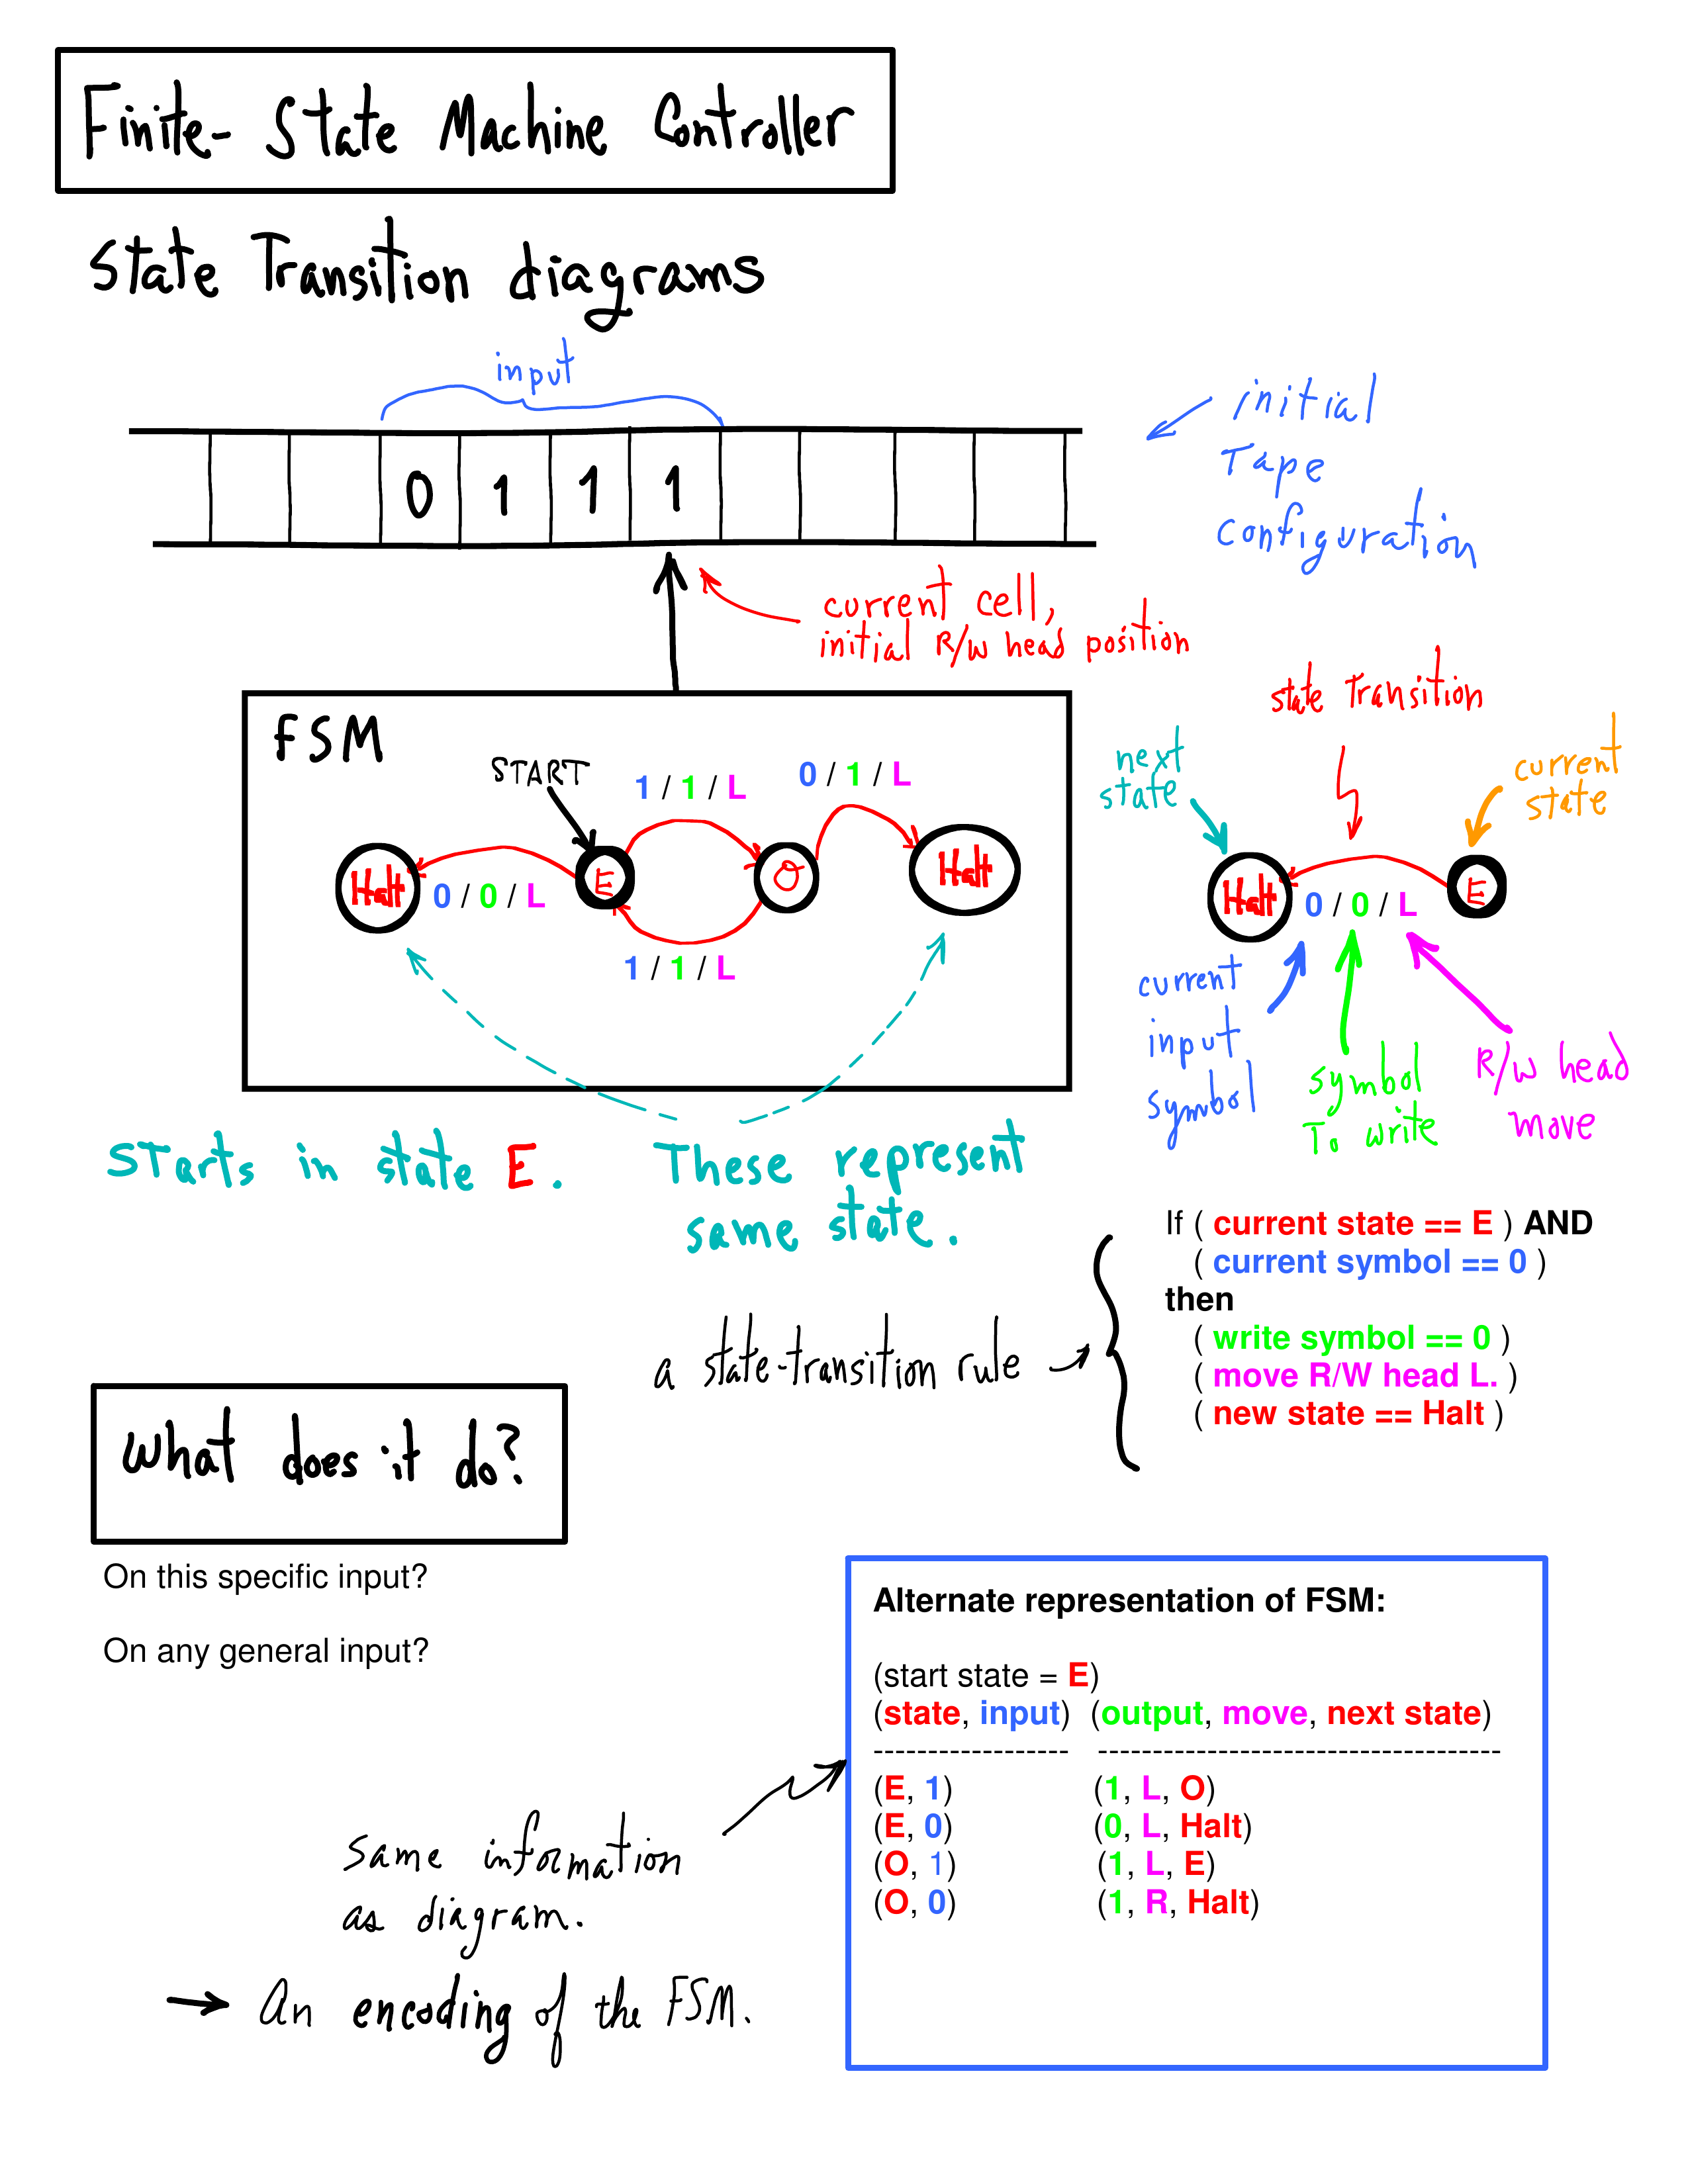 Finite-State Machine Controller
State Transition diagrams
input
initial
Tape
configuration
0 1 1 1
current cell,
initial R/W head position
FSM
START
1 / 1 / L
0 / 1 / L
Halt
0 / 0 / L
E
O
Halt
1 / 1 / L
state Transition
next
state
current
state
Halt
0 / 0 / L
E
current
input
symbol
symbol
To write
R/W head
move
Starts in state E.
These represent
same state.
If ( current state == E ) AND
( current symbol == 0 )
then
( write symbol == 0 )
( move R/W head L. )
( new state == Halt )
a state-transition rule
What does it do?
On this specific input?
On any general input?
Alternate representation of FSM:
(start state = E)
(state, input) (output, move, next state)
------------------ -------------------------------------
(E, 1) (1, L, O)
(E, 0) (0, L, Halt)
(O, 1) (1, L, E)
(O, 0) (1, R, Halt)
same information
as diagram.
→ An encoding of the FSM.